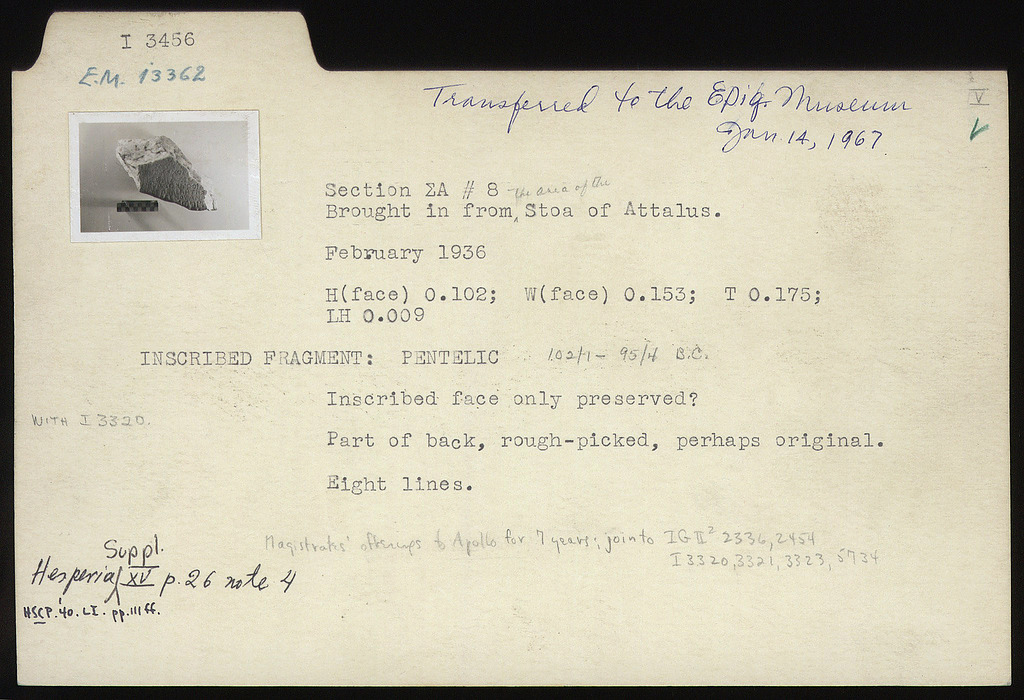 I 3456
E.M. 13362
Transferred to the Epig. Museum
Jan. 14, 1967
V
Section ΣA # 8
the area of the
Brought in from Stoa of Attalus.
February 1936
H(face) 0.102; W(face) 0.153; T 0.175;
LH 0.009
INSCRIBED FRAGMENT: PENTELIC 102/1 - 95/4 B.C.
Inscribed face only preserved?
WITH I 3320.
Part of back, rough-picked, perhaps original.
Eight lines.
Magistrates' offerings to Apollo for 7 years; join to IG II² 2336, 2454
I 3320, 3321, 3323, 5734
Suppl.
Hesperia XV p. 26 note 4
HSCP. '40. LI. pp. 111 ff.